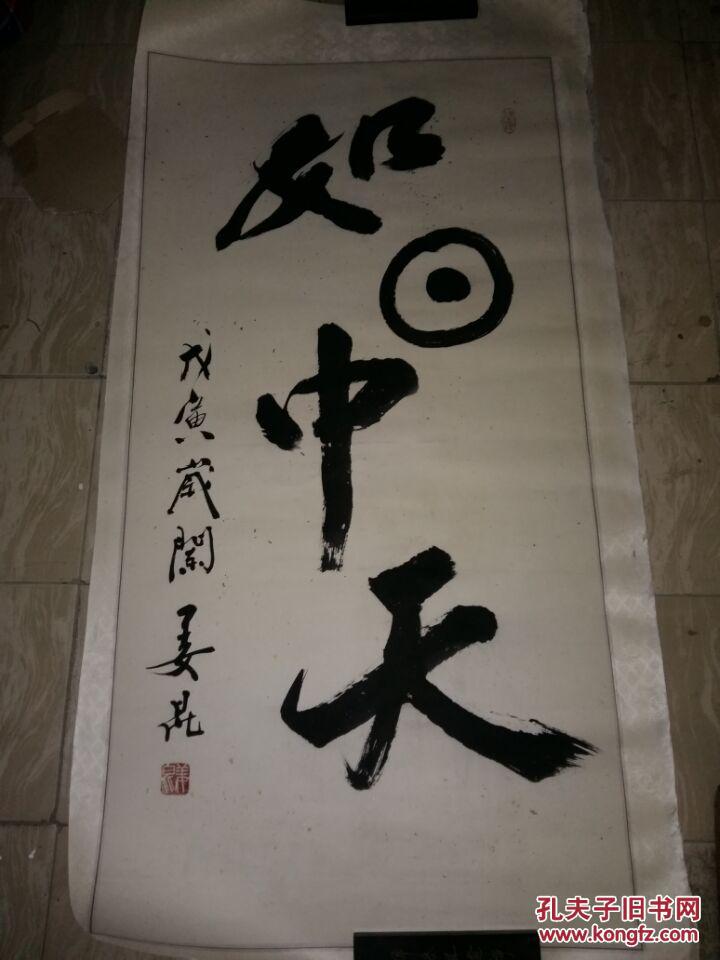 如日中天
戊寅歲闌 姜昆
孔夫子旧书网
www.kongfz.com